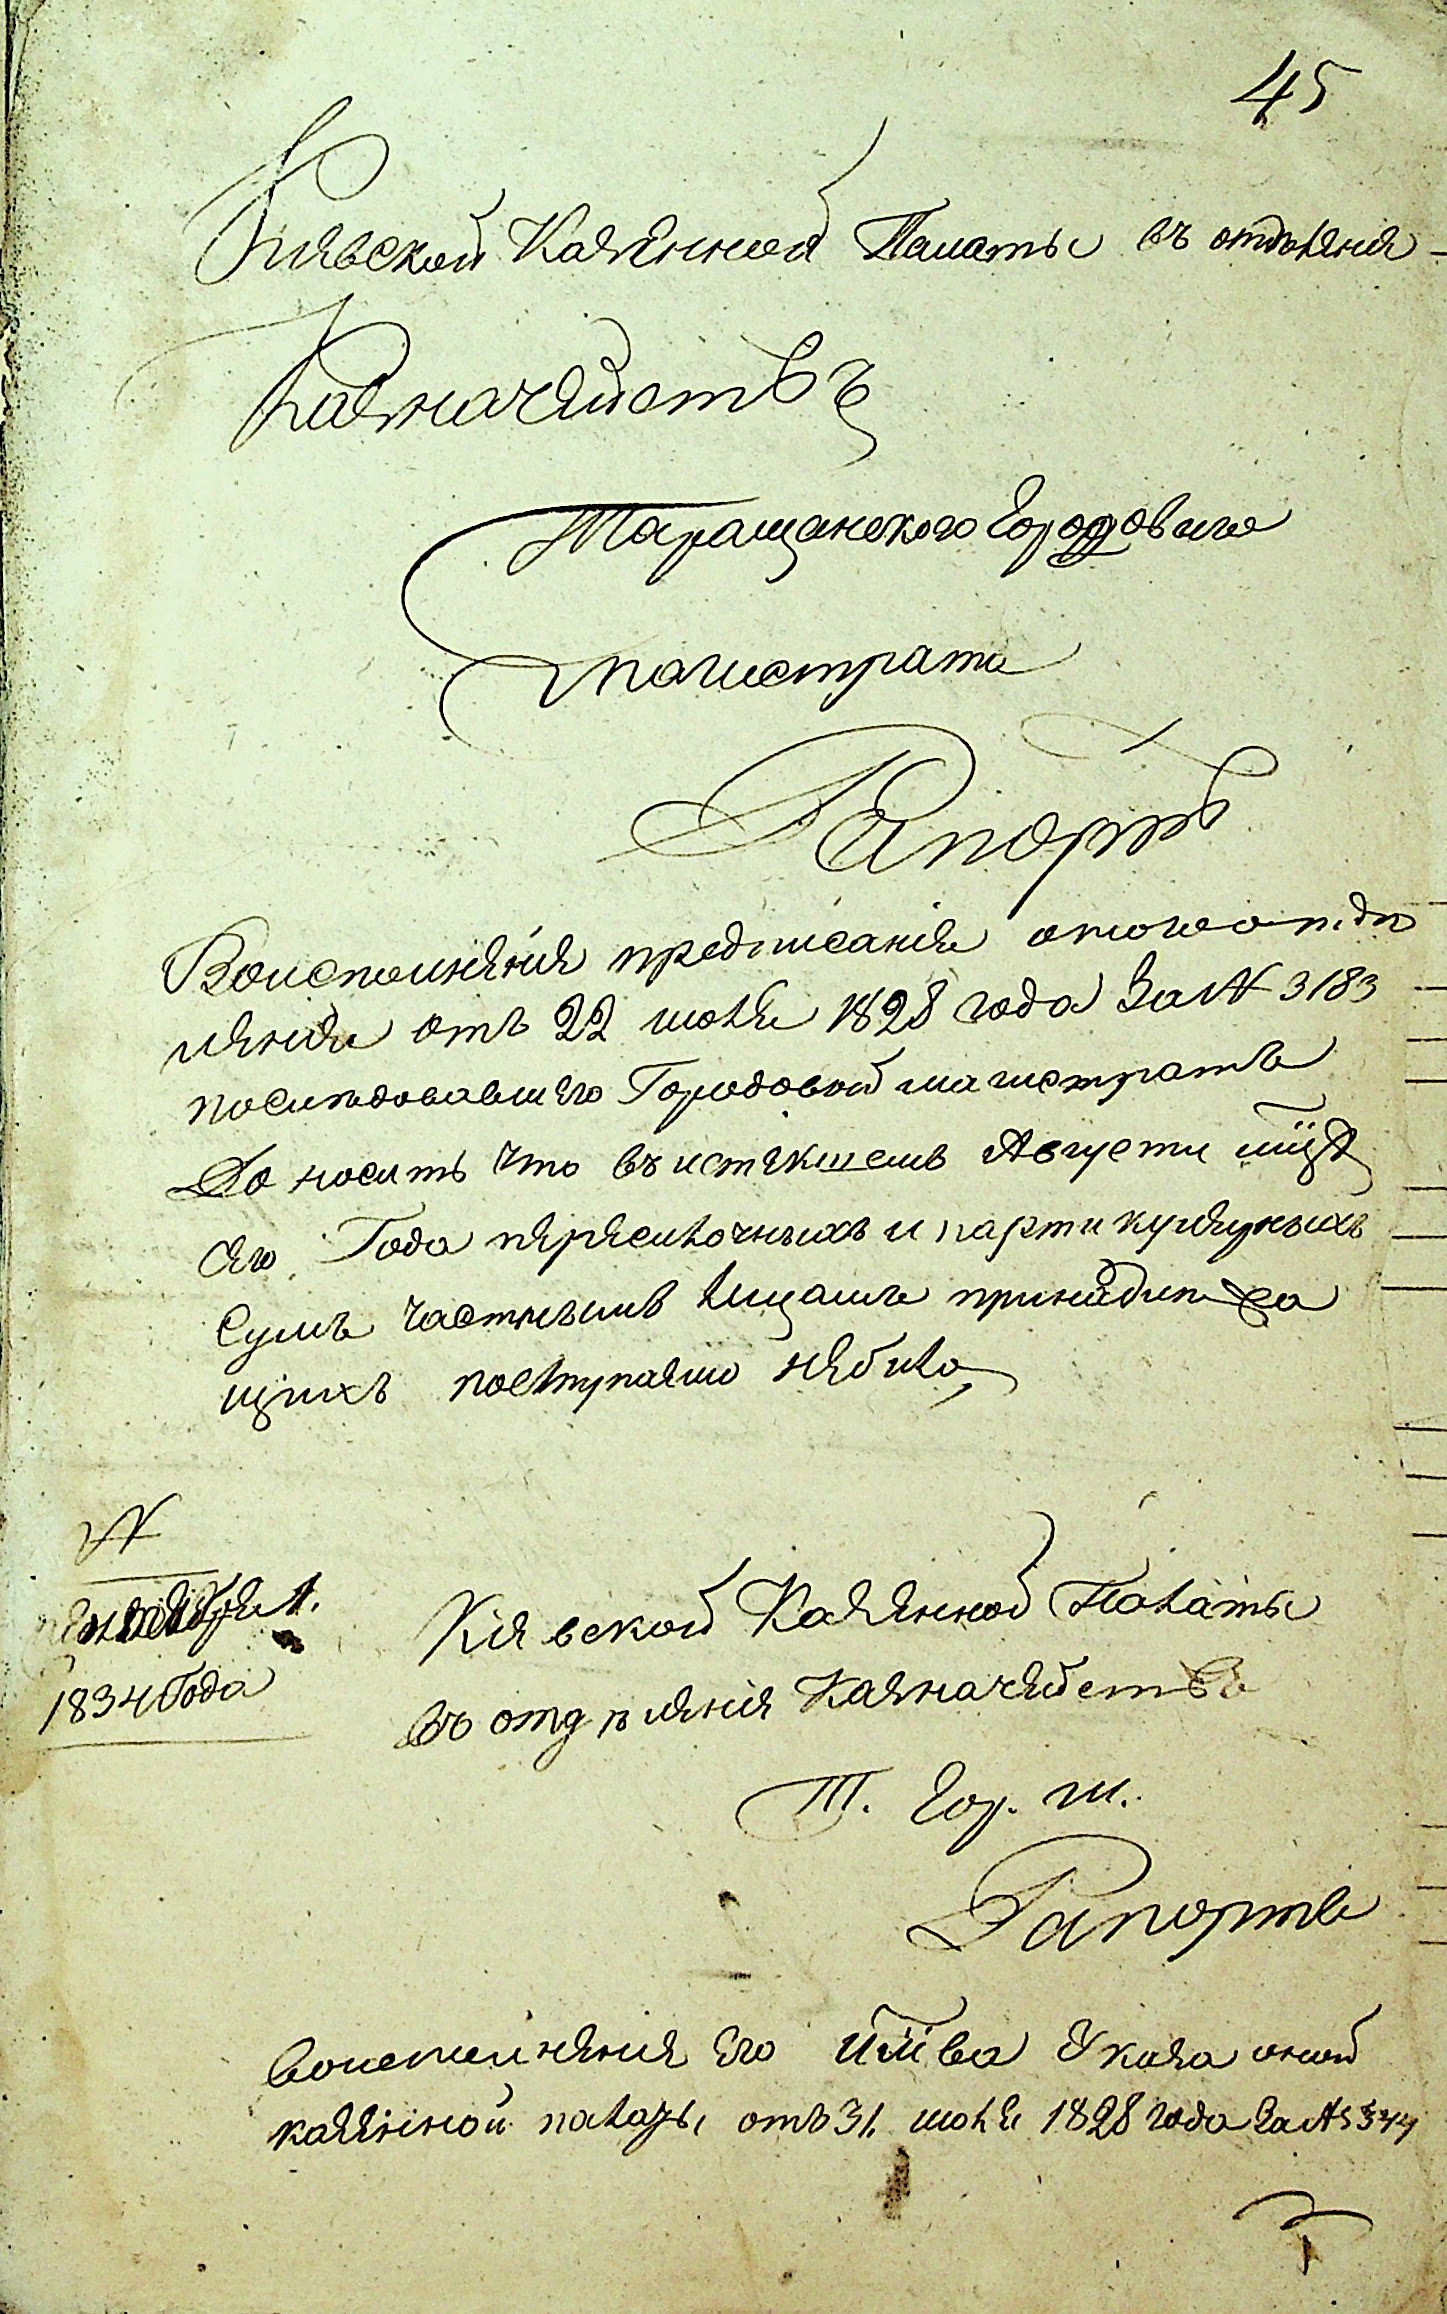 45
Киевской Казенной Палаты въ отделение
Казначействъ
Таращанского Городового
магистрата
Рапортъ
Воисполнение предписания оногоотде
ления отъ 22 июля 1828 года За № 3183
последовавшего Городовой магистратъ
До носитъ что въ истекшемъ Августе мцѣ
сего Года пересылочныхъ и партикулярныхъ
Сумъ частнымъ лицамъ принадлежа
щихъ поступаемо небило
№
сентября 1.
1834 Года
Киевской Казенной Палаты
въ отделение Казначействъ
Т. Гор. м.
Рапортъ
воисполнение Его ИМ̃Ва Указа оной
казенной палаты отъ 31. июля 1828 года За №